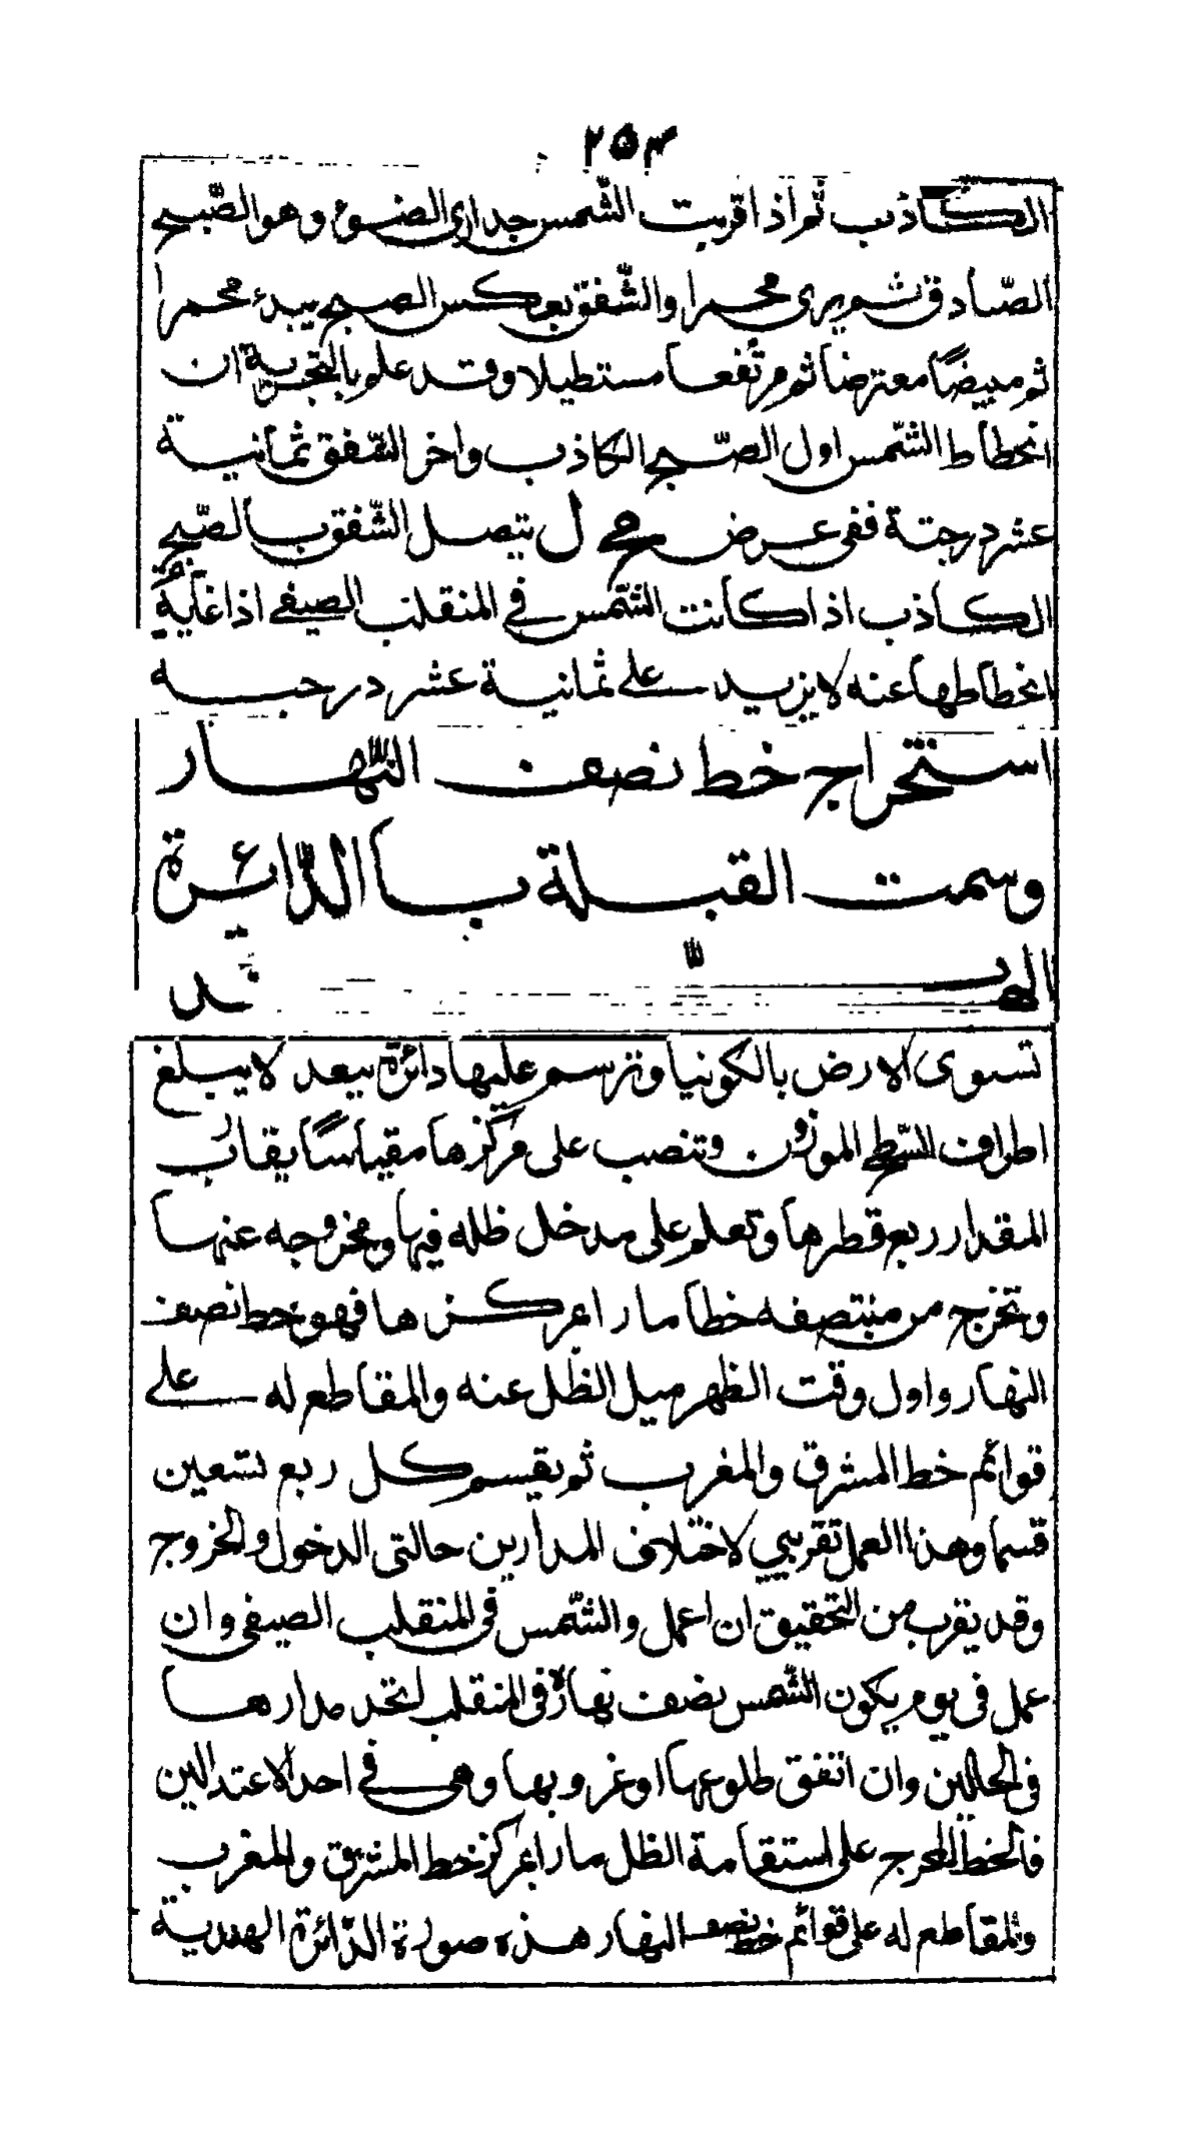 ٢٥٣
الكاذب ثم اذا قربت الشمس جدا رى الضوء وهو الصّبح
الصّادق ثم يرى محمرا والشّفق بعكس الصبح يبدء محمرا
ثم مبيضًا معترضا ثم مرتفعا مستطيلا وقد علم بالتجربة ان
انحطاط الشّمس اول الصّبح الكاذب واخر الشّفق ثمانية
عشر درجة ففى عرض مح ل يتصل الشّفق بالصّبح
الكاذب اذا كانت الشّمس في المنقلب الصيفے اذ غاية
انحطاطها عنه لا يزيد علے ثمانية عشر درجه
استخراج خط نصف النّهار
وسمت القبلة با الدّائرة
الهندية
تسوى الارض بالكونيا وترسم عليها دائرة ببعد لا يبلغ
اطراف السّطح الموزون وتنصب على مركزها مقياسًا يقارب
المقدار ربع قطرها وتعلم على مدخل ظله فيها ومخروجه عنها
وتخرج من منتصفه خطا مارا بمركزها فهو خط نصف
النهار واول وقت الظهر ميل الظّل عنه والمقاطع له علے
قوائم خط المشرق والمغرب ثم يقسم كل ربع تسعين
قسما وهذا العمل تقريبي لاختلاف المدارين حالتى الدخول والخروج
وقد يقرب من التحقيق ان اعمل والشّمس فى المنقلب الصيفى وان
عمل فى يوم يكون الشّمس نصف نهاره فى المنقلب لتخد مدارها
فى الحالين وان اتفق طلوعها او غروبها وهى فے احد الاعتدالين
فالخط المخرج على استقامة الظل مارا بمركز خط المشرق والمغرب
والمقاطع له على قوائم خط نصف النهار هذه صورة الدّائرة الهندية